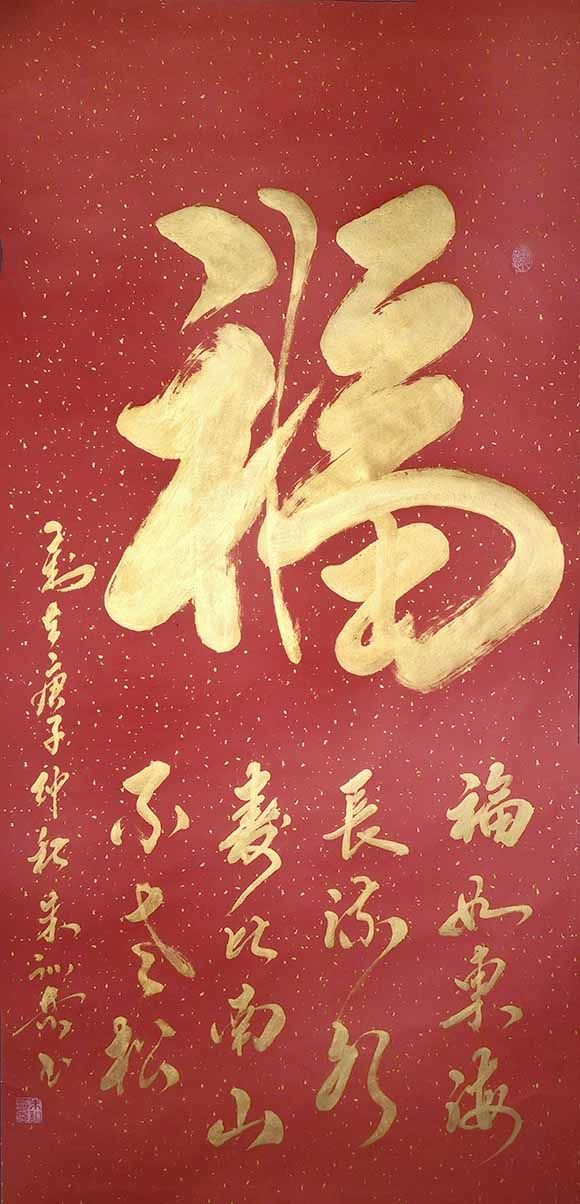 福
福如東海
長流水
壽比南山
不老松
歲在庚子仲秋朱